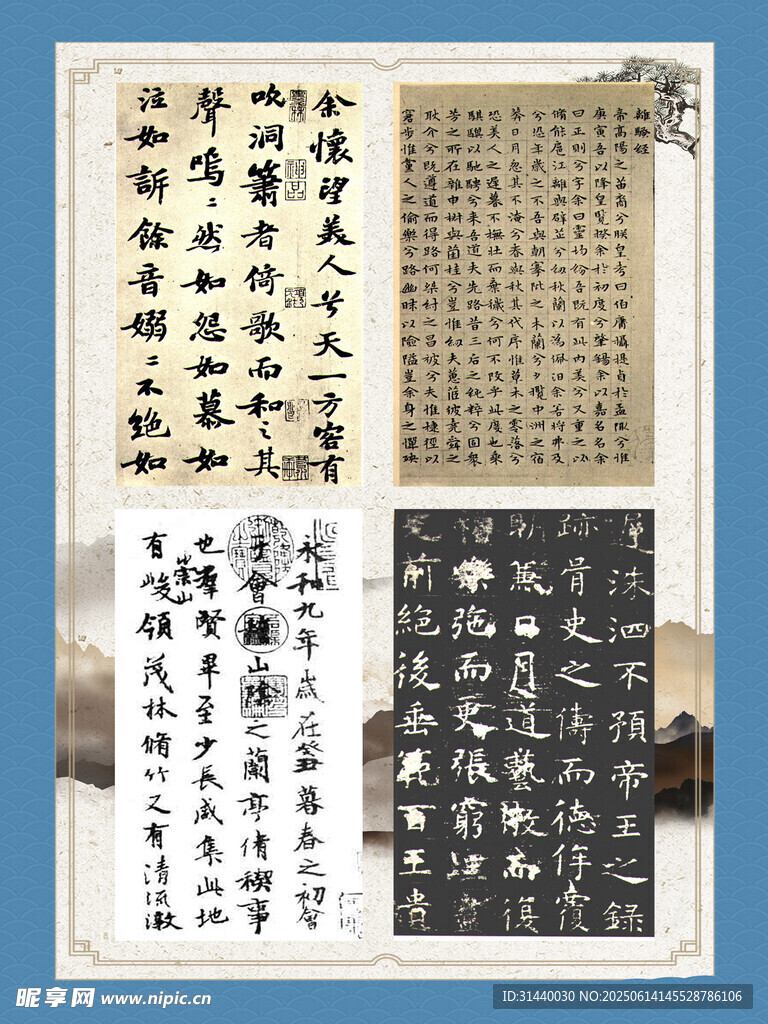 余懷望美人兮天一方客有
吹洞簫者倚歌而和之其
聲嗚ミ然如怨如慕如
泣如訴餘音嫋ミ不絕如
離騷經
帝高陽之苗裔兮朕皇考曰伯庸攝提貞于孟陬兮惟
庚寅吾以降皇覽揆余於初度兮肇錫余以嘉名名余
曰正則兮字余曰靈均紛吾既有此內美兮又重之以
脩能扈江離與辟芷兮紉秋蘭以為佩汨余若將弗及
兮恐年歲之不吾與朝搴阰之木蘭兮夕攬中洲之宿
莽日月忽其不淹兮春與秋其代序惟草木之零落兮
恐美人之遲暮不撫壯而棄穢兮何不改乎此度也乘
騏驥以馳騁兮來吾道夫先路昔三后之純粹兮固衆
芳之所在雜申椒與菌桂兮豈惟紉夫蕙茝彼堯舜之
耿介兮既遵道而得路何桀紂之昌被兮夫惟捷徑以
窘步惟黨人之偷樂兮路幽昧以險隘豈余身之憚殃
永和九年歲在癸丑暮春之初會
于會稽山陰之蘭亭脩稧事
也羣賢畢至少長咸集此地
有崇山峻領茂林脩竹又有清流激
洙泗不預帝王之錄
跡胥史之儔而德侔覆
日月道藝微而復
樂弛而更張窮理盡
光前絕後垂範百王遺
昵享网 www.nipic.cn
ID:31440030 NO:20250614145528786106